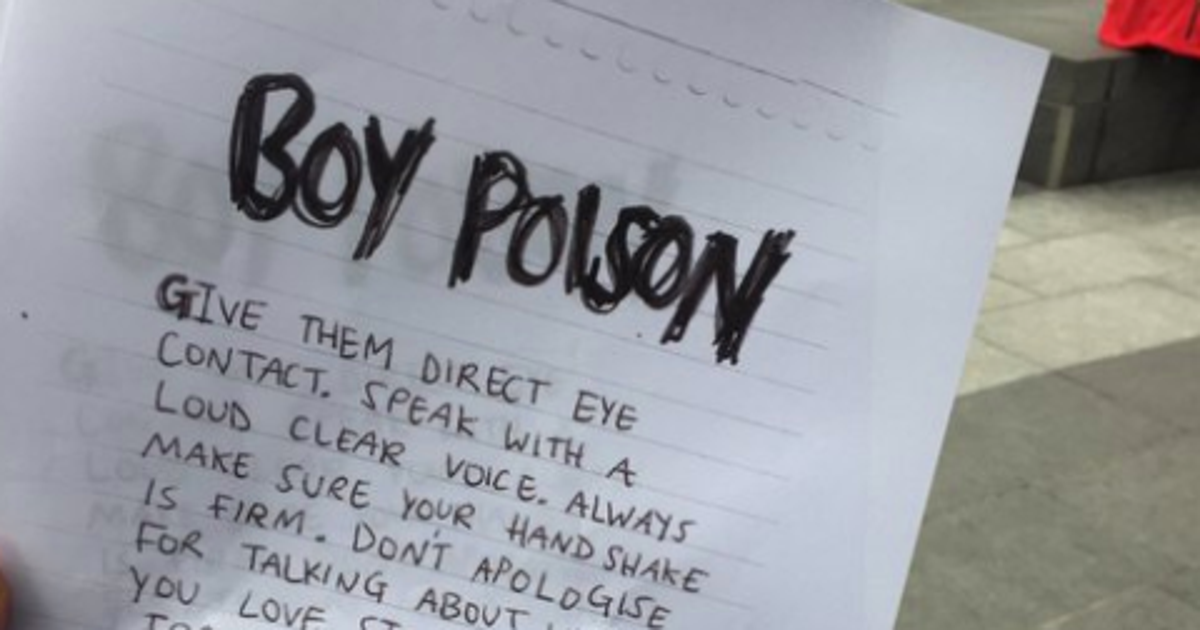 BOY POISON
GIVE THEM DIRECT EYE
CONTACT. SPEAK WITH A
LOUD CLEAR VOICE. ALWAYS
MAKE SURE YOUR HANDSHAKE
IS FIRM. DON'T APOLOGISE
FOR TALKING ABOUT
YOU LOVE